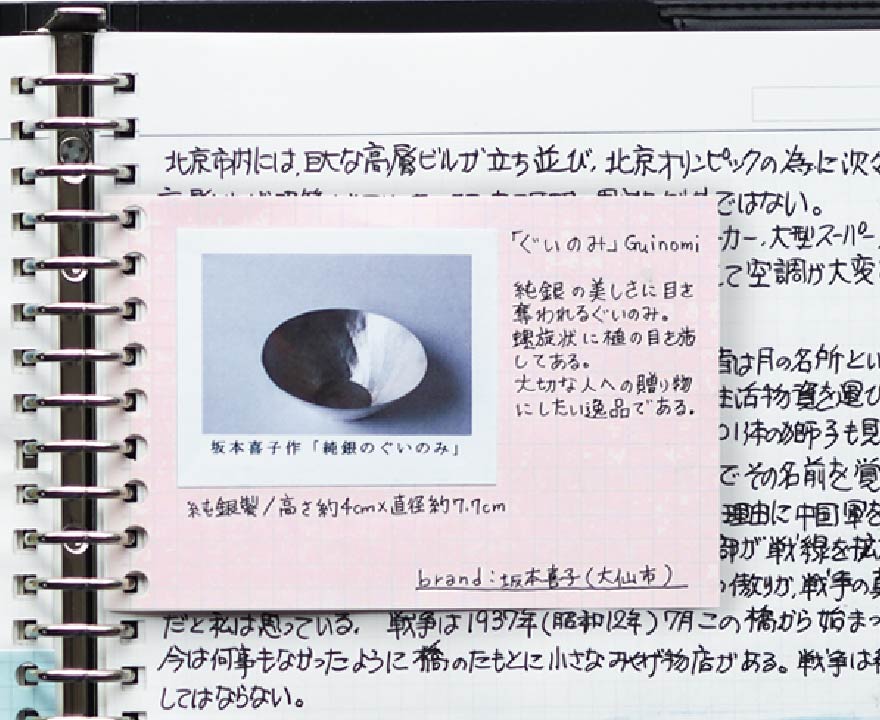 北京市内には、巨大な高層ビルが立ち並び、北京オリンピックの為に次々
ではない。
カー、大型スーパー
て空調が大変
「ぐいのみ」Guinomi
純銀の美しさに目を
奪われるぐいのみ。
螺旋状に槌の目を施
してある。
大切な人への贈り物
にしたい逸品である。
坂本喜子作「純銀のぐいのみ」
純銀製/高さ約4cm×直径約7.7cm
brand:坂本喜子(大仙市)
は月の名所とい
生活物資を運び
体の獅子も見
でその名前を覚
理由に中国軍を
部が戦線を拡
傲りが、戦争の真
だと私は思っている。 戦争は1937年(昭和12年)7月この橋から始まっ
今は何事もなかったように橋のたもとに小さなみやげ物店がある。戦争は
してはならない。